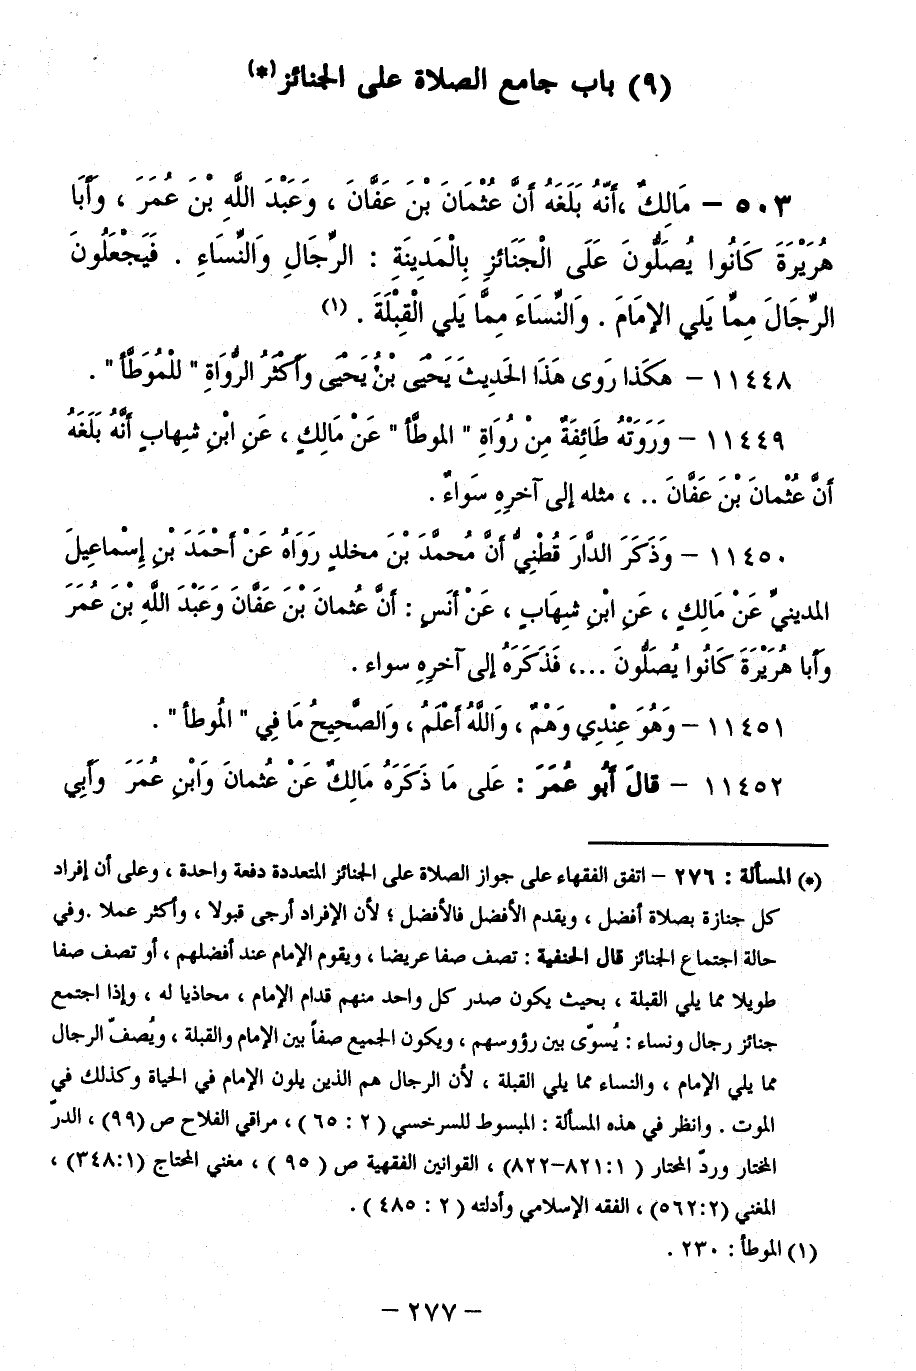 (٩) باب جامع الصلاة على الجنائز(*)
٥٠٣ – مَالِكٌ ،أَنَّهُ بَلَغَهُ أَنَّ عُثْمَانَ بْنَ عَفَّانَ ، وَعَبْدَ اللَّهِ بْنَ عُمَرَ ، وَأَبَا
هُرَيْرَةَ كَانُوا يُصَلُّونَ عَلَى الْجَنَائزِ بِالْمَدِينَةِ : الرِّجَالِ وَالنِّسَاءِ . فَيَجْعَلُونَ
الرِّجَالَ مِمَّا يَلي الإمَامَ . وَالنِّسَاءَ مِمَّا يَلي الْقِبْلَةَ . (١)
١١٤٤٨ – هكَذا رَوى هَذَا الحَديثَ يَحْيَى بْنُ يَحْيَى وَأَكْثَرُ الرُّوَاةِ " للْمُوَطَّأ " .
١١٤٤٩ – وَرَوَتْهُ طَائِفَةٌ مِنْ رُوَاةِ " الموطَّأ " عَنْ مَالِكٍ ، عَنِ ابْنِ شِهابٍ أَنَّهُ بَلَغَهُ
أَنَّ عُثْمانَ بْنَ عَفَّانَ .. ، مثله إلى آخرِهِ سَواءٌ .
١١٤٥٠ – وَذَكَرَ الدَّارَ قُطْنِيُّ أَنَّ مُحمَّدَ بْنَ مخلدٍ رَوَاهُ عَنْ أَحْمَدَ بْنِ إِسْماعِيلَ
المدينيِّ عَنْ مَالِكٍ ، عَنِ ابْنِ شِهَابٍ ، عَنْ أَنَسٍ : أَنَّ عُثمانَ بْنَ عَفَّانَ وَعَبْدَ اللَّهِ بْنَ عُمَرَ
وَأَبا هُرَيْرَةَ كَانُوا يُصَلُّونَ ...، فَذَكَرَهُ إلى آخرِهِ سواء .
١١٤٥١ – وَهُوَ عِنْدِي وَهْمٌ ، وَاللَّهُ أَعْلَمُ ، وَالصَّحِيحُ مَا فِي " المُوطأ " .
١١٤٥٢ – قالَ أَبُو عُمَرَ : عَلى مَا ذَكَرَهُ مَالِكٌ عَنْ عُثمانَ وَابْنِ عُمَرَ وَأَبِي
(*) المسألة : ٢٧٦ – اتفق الفقهاء على جواز الصلاة على الجنائز المتعددة دفعة واحدة ، وعلى أن إفراد
كل جنازة بصلاة أفضل ، ويقدم الأفضل فالأفضل ؛ لأن الإفراد أرجى قبولا ، وأكثر عملا .وفي
حالة اجتماع الجنائز قال الحنفية : تصف صفا عريضا ، ويقوم الإمام عند أفضلهم ، أو تصف صفا
طويلا مما يلي القبلة ، بحيث يكون صدر كل واحد منهم قدام الإمام ، محاذيا له ، وإذا اجتمع
جنائز رجال ونساء : يُسوّى بين رؤوسهم ، ويكون الجميع صفاً بين الإمام والقبلة ، ويُصفّ الرجال
مما يلي الإمام ، والنساء مما يلي القبلة ، لأن الرجال هم الذين يلون الإمام في الحياة وكذلك في
الموت . وانظر في هذه المسألة : المبسوط للسرخسي ( ٢ : ٦٥ ) ، مراقي الفلاح ص (٩٩) ، الدرّ
المختار وردّ المحتار ( ١:٨٢١–٨٢٢) ، القوانين الفقهية ص ( ٩٥ ) ، مغني المحتاج (٣٤٨:١) ،
المغني (٥٦٢:٢) ، الفقه الإسلامي وأدلته ( ٢ : ٤٨٥ ) .
(١) الموطأ : ٢٣٠ .
– ٢٧٧ –